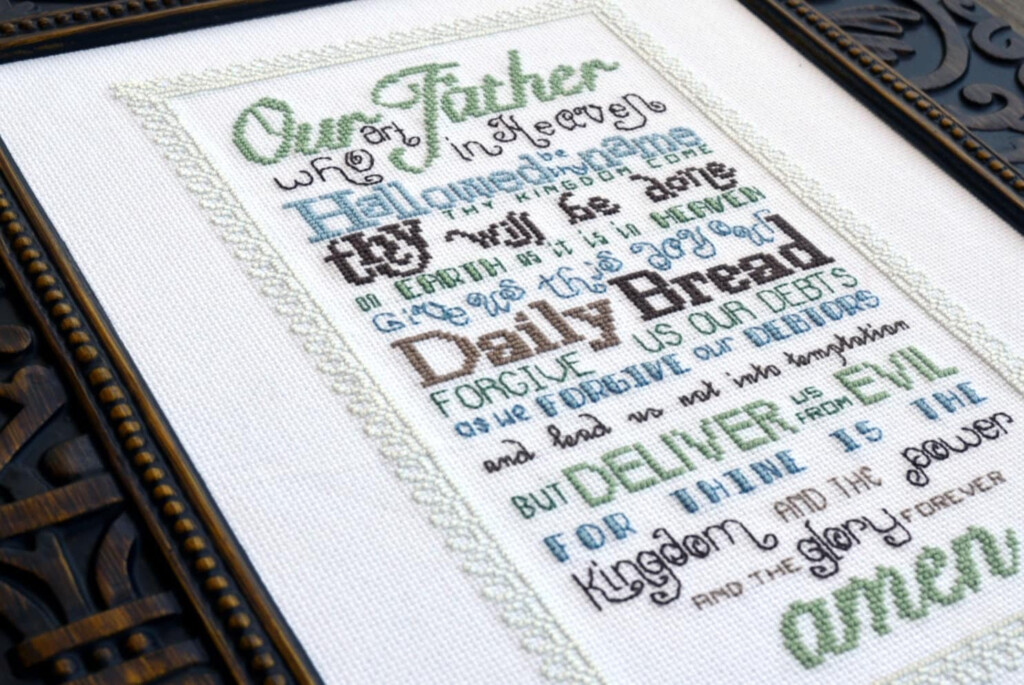 Our Father
who art in Heaven
Hallowed be thy name
THY KINGDOM COME
thy will be done
on EARTH as it is in HEAVEN
Give us this day our
Daily Bread
FORGIVE US OUR DEBTS
as we FORGIVE our DEBTORS
and lead us not into temptation
BUT DELIVER US FROM EVIL
FOR THINE IS THE
Kingdom AND THE power
AND THE glory FOREVER
amen